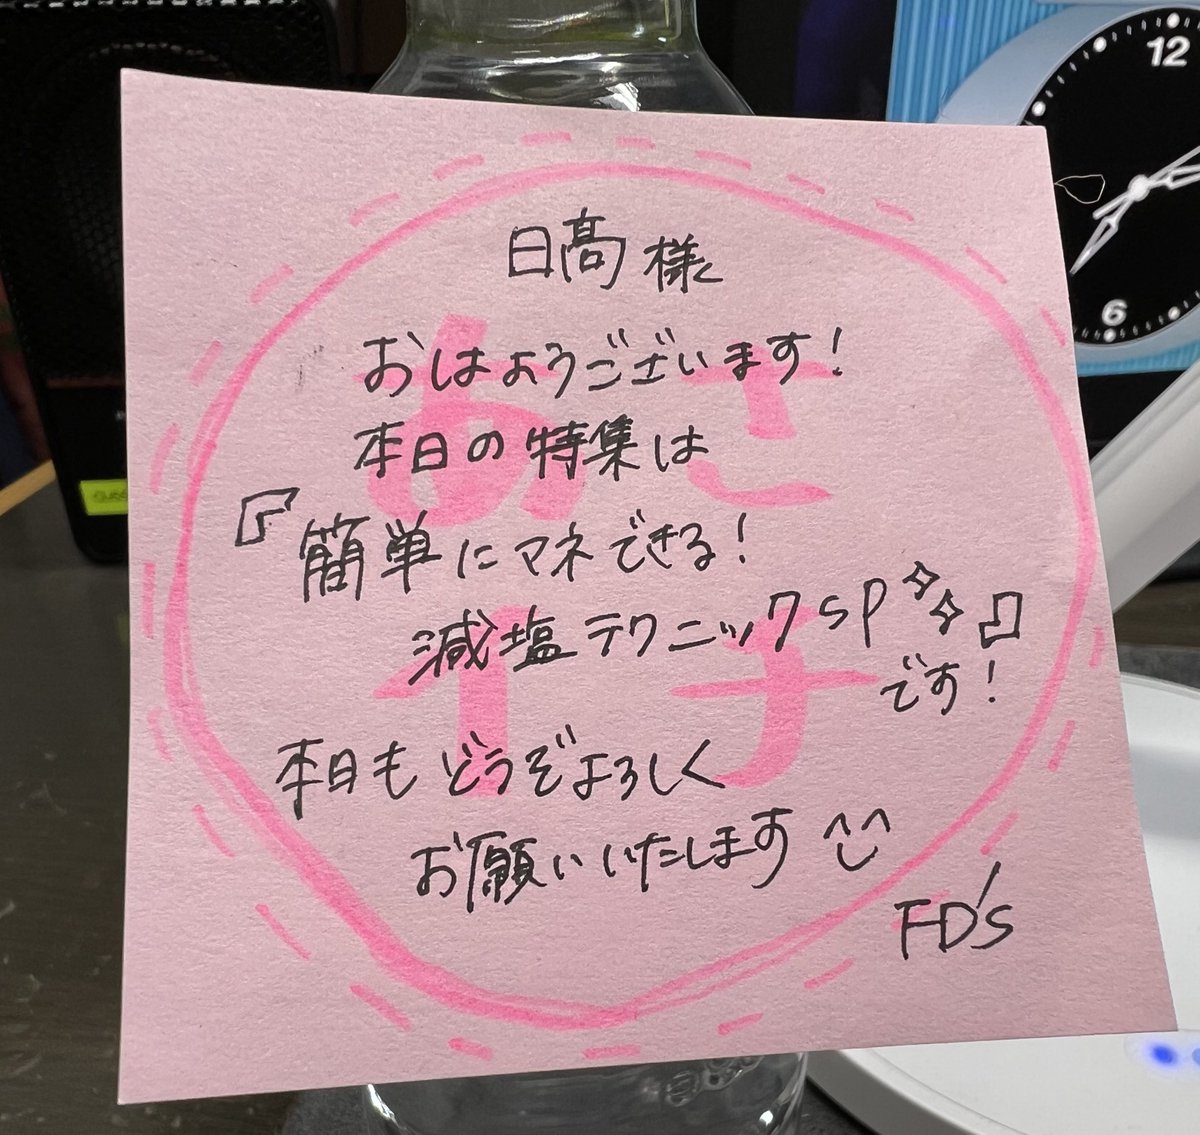 日髙様
おはようございます!
本日の特集は
『簡単にマネできる!
減塩テクニックSP✧✧』
です!
本日もどうぞよろしく
お願いいたします^^
FD's
あさ
イチ
12
6